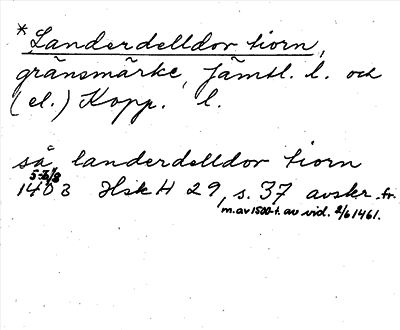 *Landerdelldor tiorn,
gränsmärke, Jämtl. l. och
(el.) Kopp. l.
så landerdelldor tiorn
5-3/8
1403 Hsk H 29, s. 37 avskr. fr.
m. av 1500-t. av vid. 2/6 1461.